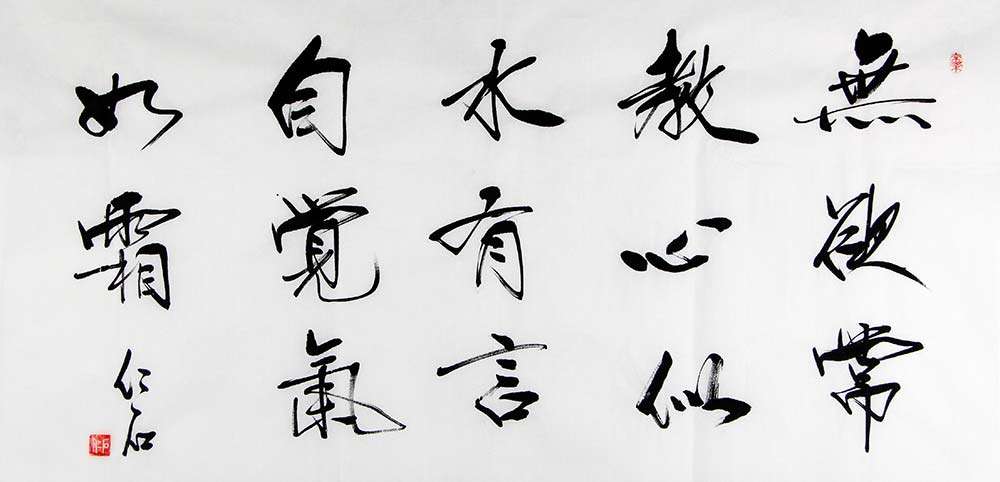 無欲常
教心似
水有言
自覺氣
如霜
仁石